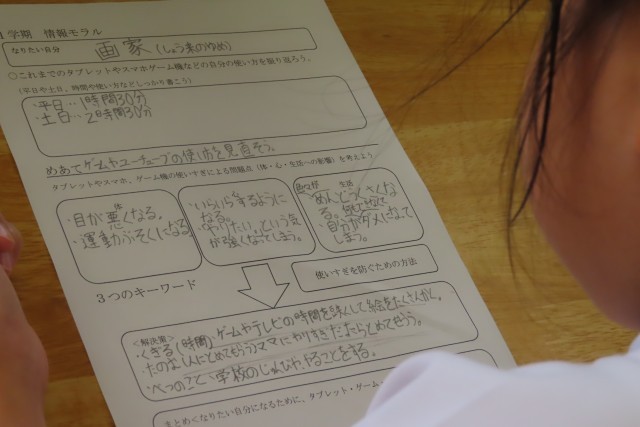 学期 情報モラル
なりたい自分 画家(しょう来のゆめ)
○これまでのタブレットやスマホゲーム機などの自分の使い方を振り返ろう。
(平日や土日、時間や使い方などしっかり書こう)
・平日…1時間30分
・土日…2時間30分
めあてゲームやユーチューブの使い方を見直そう。
タブレットやスマホ、ゲーム機の使いすぎによる問題点(体・心・生活への影響)を考えよう
体
・目が悪くなる。
・運動がふそくになる
・いらいらするように
なる。
・やりたい、という気
が強くなってしまう。
生活
めんどうくさくな
る。
・自分がダメになって
しまう。
使いすぎを防ぐための方法
3つのキーワード
<解決策>
・くぎる(時間)ゲームやテレビの時間を決めて絵をたくさんかく。
・たのむ(人にとめてもらう)ママにやりすぎたらとめてもらう。
・べつのこと、学校のじゅんびややることをする。
まとめくなりたい自分になるために、タブレット・ゲーム